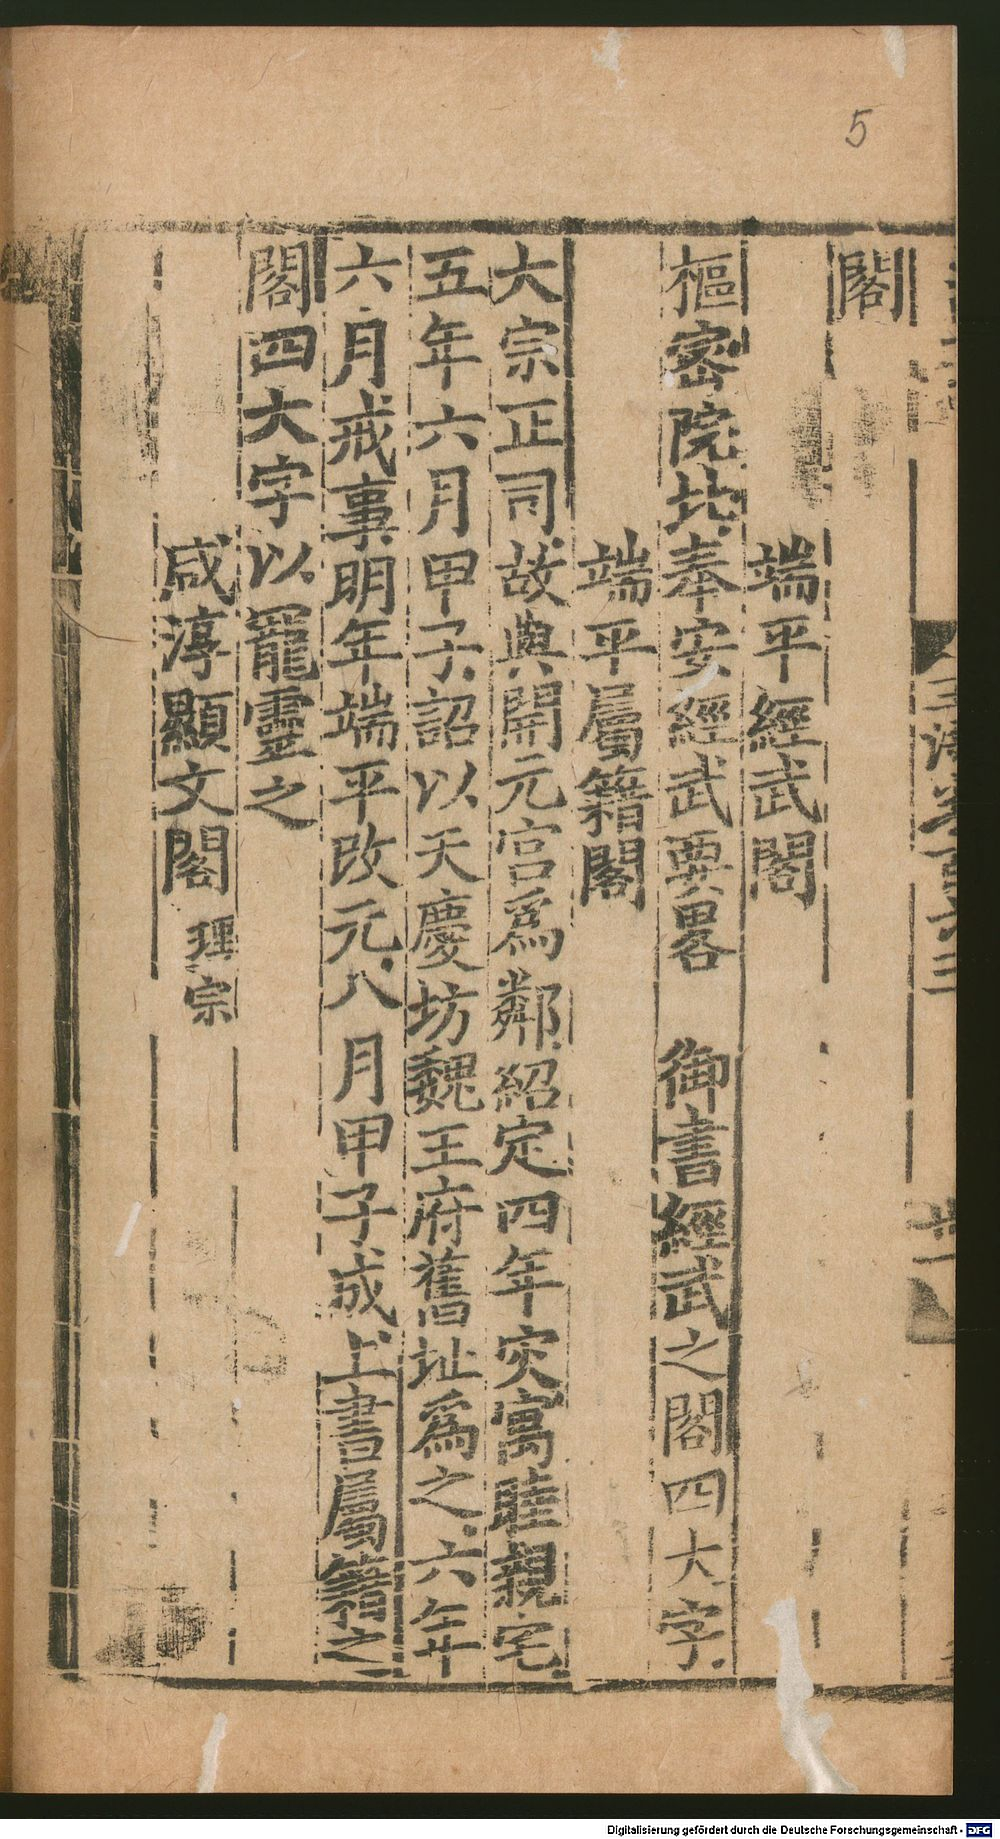 5
閣
端平經武閣
樞密院比奉安經武要畧 御書經武之閣四大字
端平屬籍閣
大宗正司故典開元宮爲鄰紹定四年灾寓睦親宅
五年六月甲子詔以天慶坊魏王府舊址爲之六年
六月戒事明年端平改元八月甲子成上書屬籍之
閣四大字以寵靈之
咸淳顯文閣 理宗
Digitalisierung gefördert durch die Deutsche Forschungsgemeinschaft - DFG